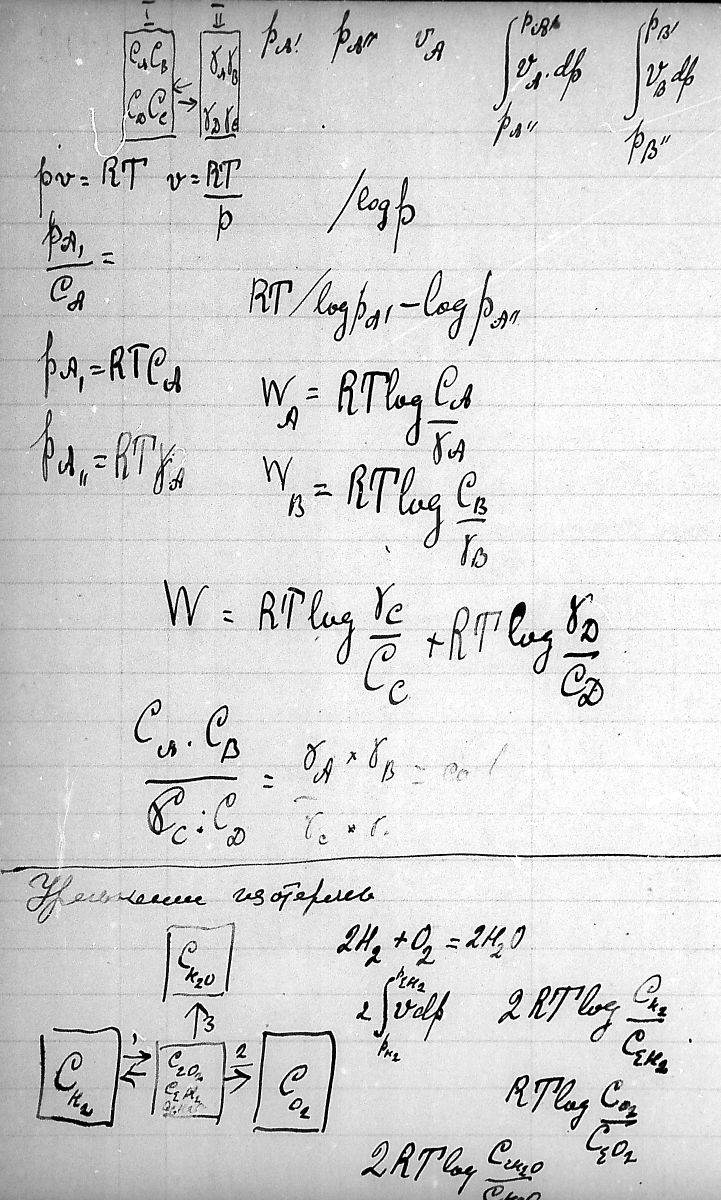 I II
C_A C_B γ_A γ_B p_A' p_A'' v_A ∫_{p_A''}^{p_A'} v_A·dp ∫_{p_B''}^{p_B'} v_B dp
C_D C_C γ_D γ_C
pv = RT v = RT/p /log p
p_A₁/C_A =
RT/log p_A' − log p_A''
p_A₁ = RTC_A W_A = RT log C_A/γ_A
p_A₁₁ = RTγ_A W_B = RT log C_B/γ_B
W = RT log γ_C/C_C + RT log γ_D/C_D
C_A · C_B / C_C · C_D = γ_A × γ_B / γ_C × γ
Уравнение изотермы
C_H₂O 2H₂ + O₂ = 2H₂O
↑3 2∫_{p_H₂}^{p_ξH₂} v dp 2RT log C_H₂/C_ξH₂
C_H₂ 1 C_ξO₂ C_ξH₂ 2 C_O₂ RT log C_O₂/C_ξO₂
2RT log C_ξH₂O/C_H₂O